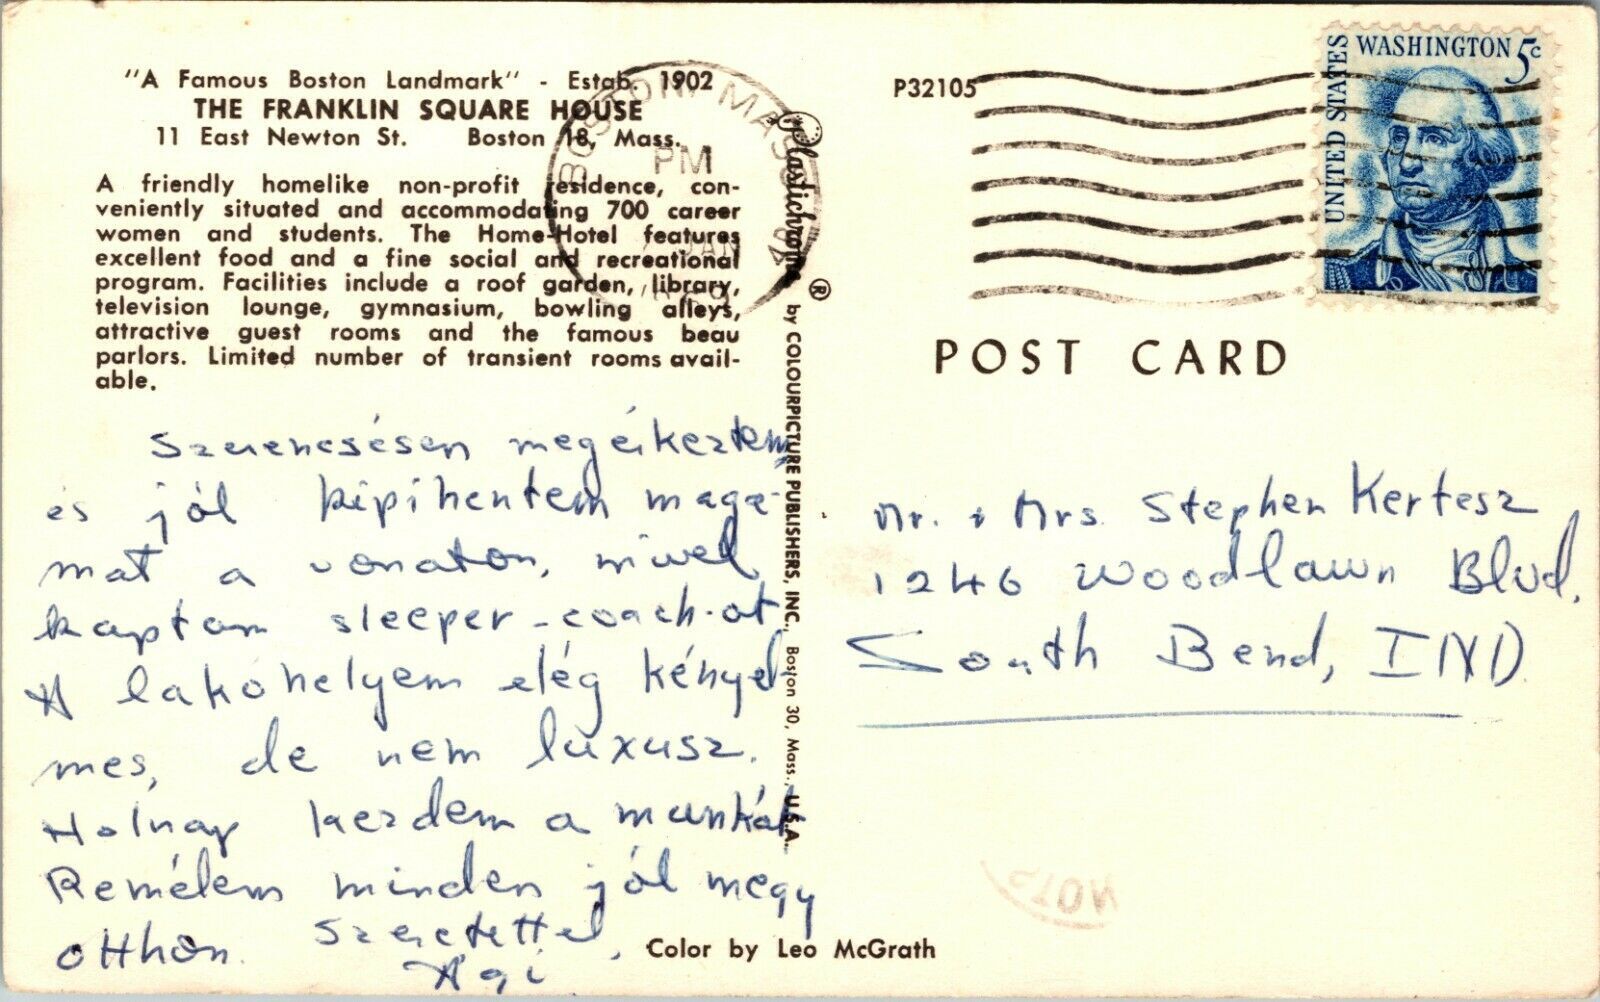 "A Famous Boston Landmark" - Estab. 1902
THE FRANKLIN SQUARE HOUSE
11 East Newton St. Boston 18, Mass.
A friendly homelike non-profit residence, con-
veniently situated and accommodating 700 career
women and students. The Home-Hotel features
excellent food and a fine social and recreational
program. Facilities include a roof garden, library,
television lounge, gymnasium, bowling alleys,
attractive guest rooms and the famous beau
parlors. Limited number of transient rooms avail-
able.
Szerencsésen megérkeztem
és jól kipihentem maga-
mat a vonaton, mivel
kaptam sleeper-coach-ot
A lakóhelyem elég kényel-
mes, de nem luxusz.
Holnap kezdem a munkát.
Remélem minden jól megy
otthon. Szeretettel,
Ági
Color by Leo McGrath
Plastichrome ® by COLOURPICTURE PUBLISHERS, INC., Boston 30, Mass., U.S.A.
BOSTON MASS
PM
JAN
P32105
UNITED STATES
WASHINGTON 5c
POST CARD
Mr. & Mrs Stephen Kertesz
1246 Woodlawn Blvd.
South Bend, IND